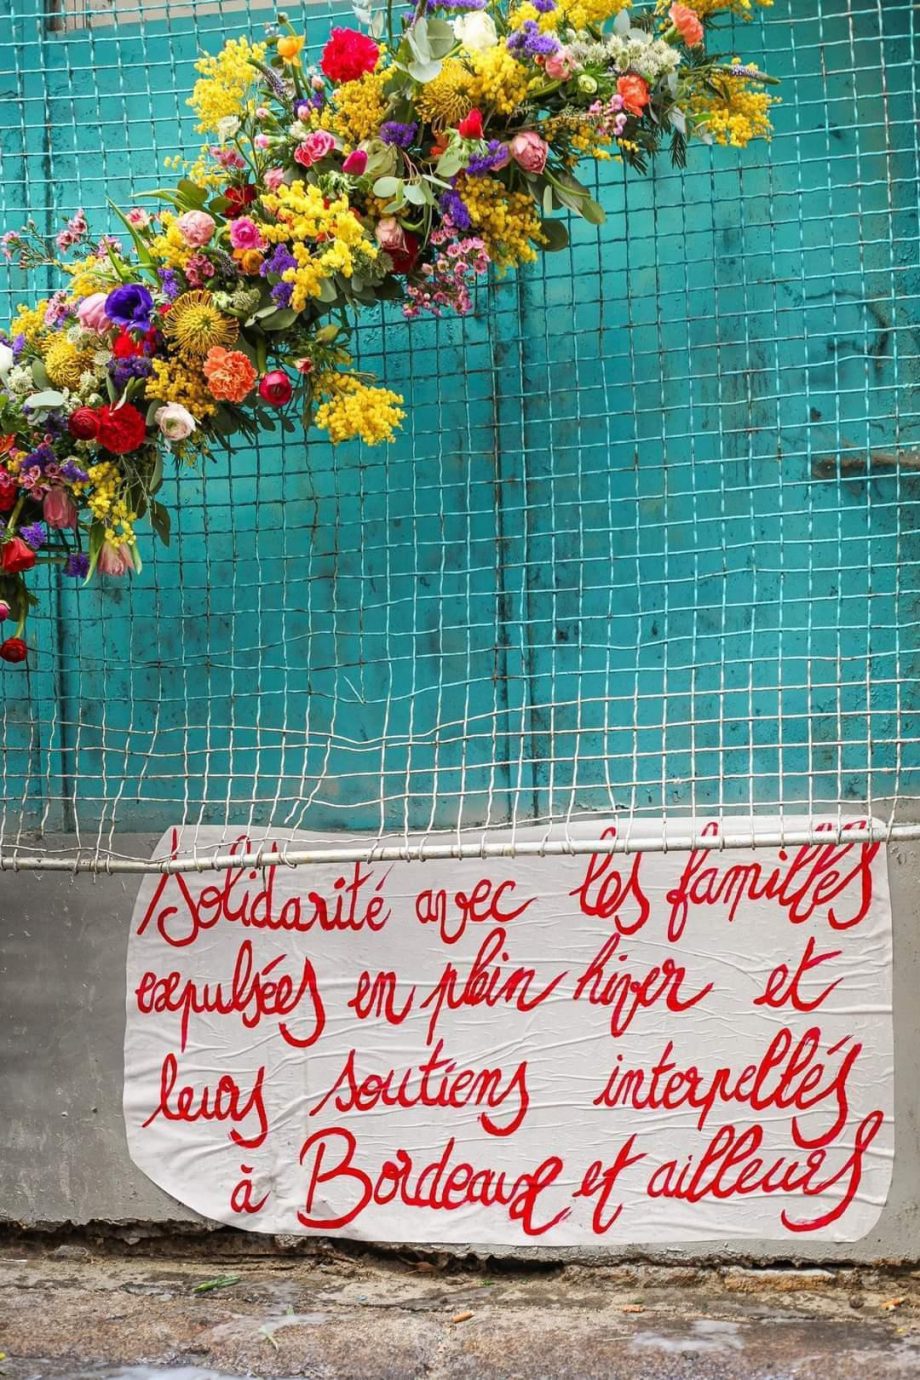 Solidarité avec les familles
expulsées en plein hiver et
leurs soutiens interpellés
à Bordeaux et ailleurs